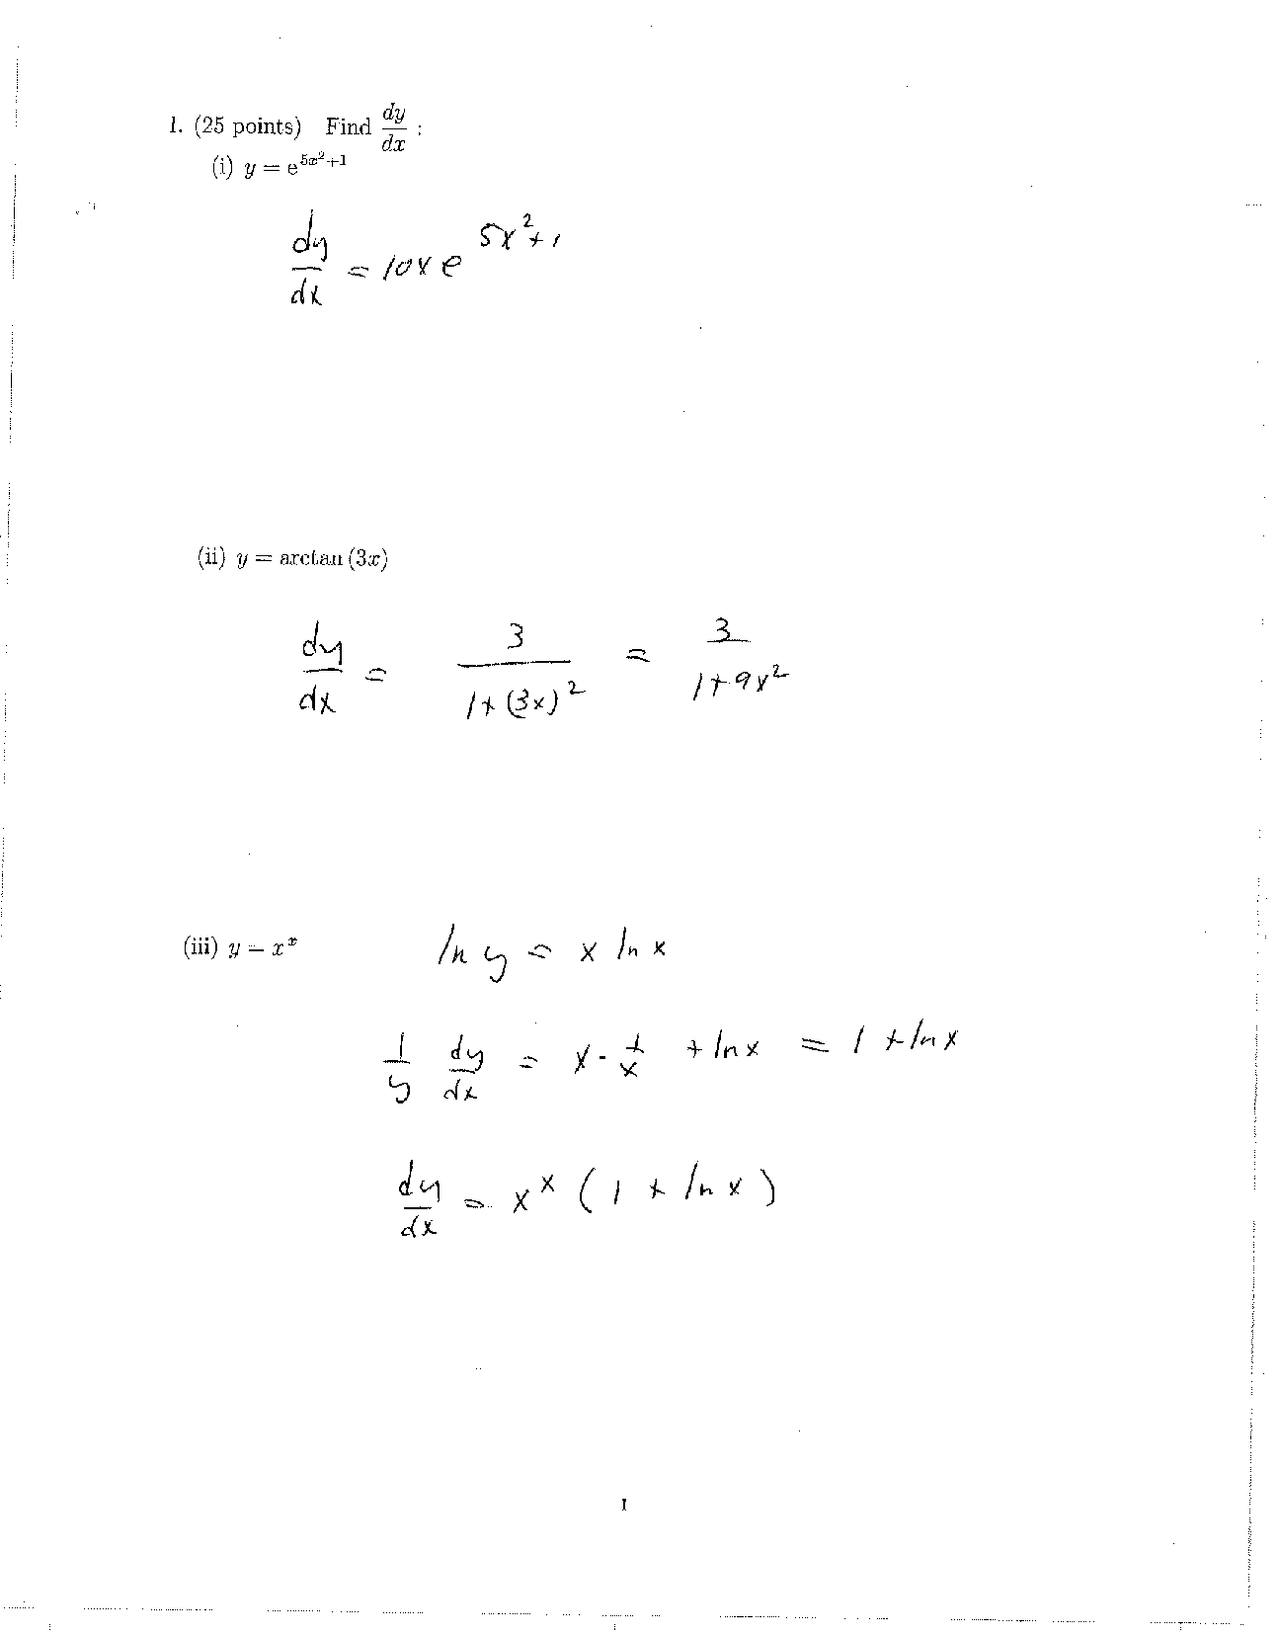 1. (25 points) Find dy/dx :
(i) y = e^{5x^2+1}
dy/dx = 10x e^{5x^2+1}
(ii) y = arctan (3x)
dy/dx = 3/(1+(3x)^2) = 3/(1+9x^2)
(iii) y = x^x ln y = x ln x
1/y dy/dx = x · 1/x + ln x = 1 + ln x
dy/dx = x^x (1 + ln x)
1